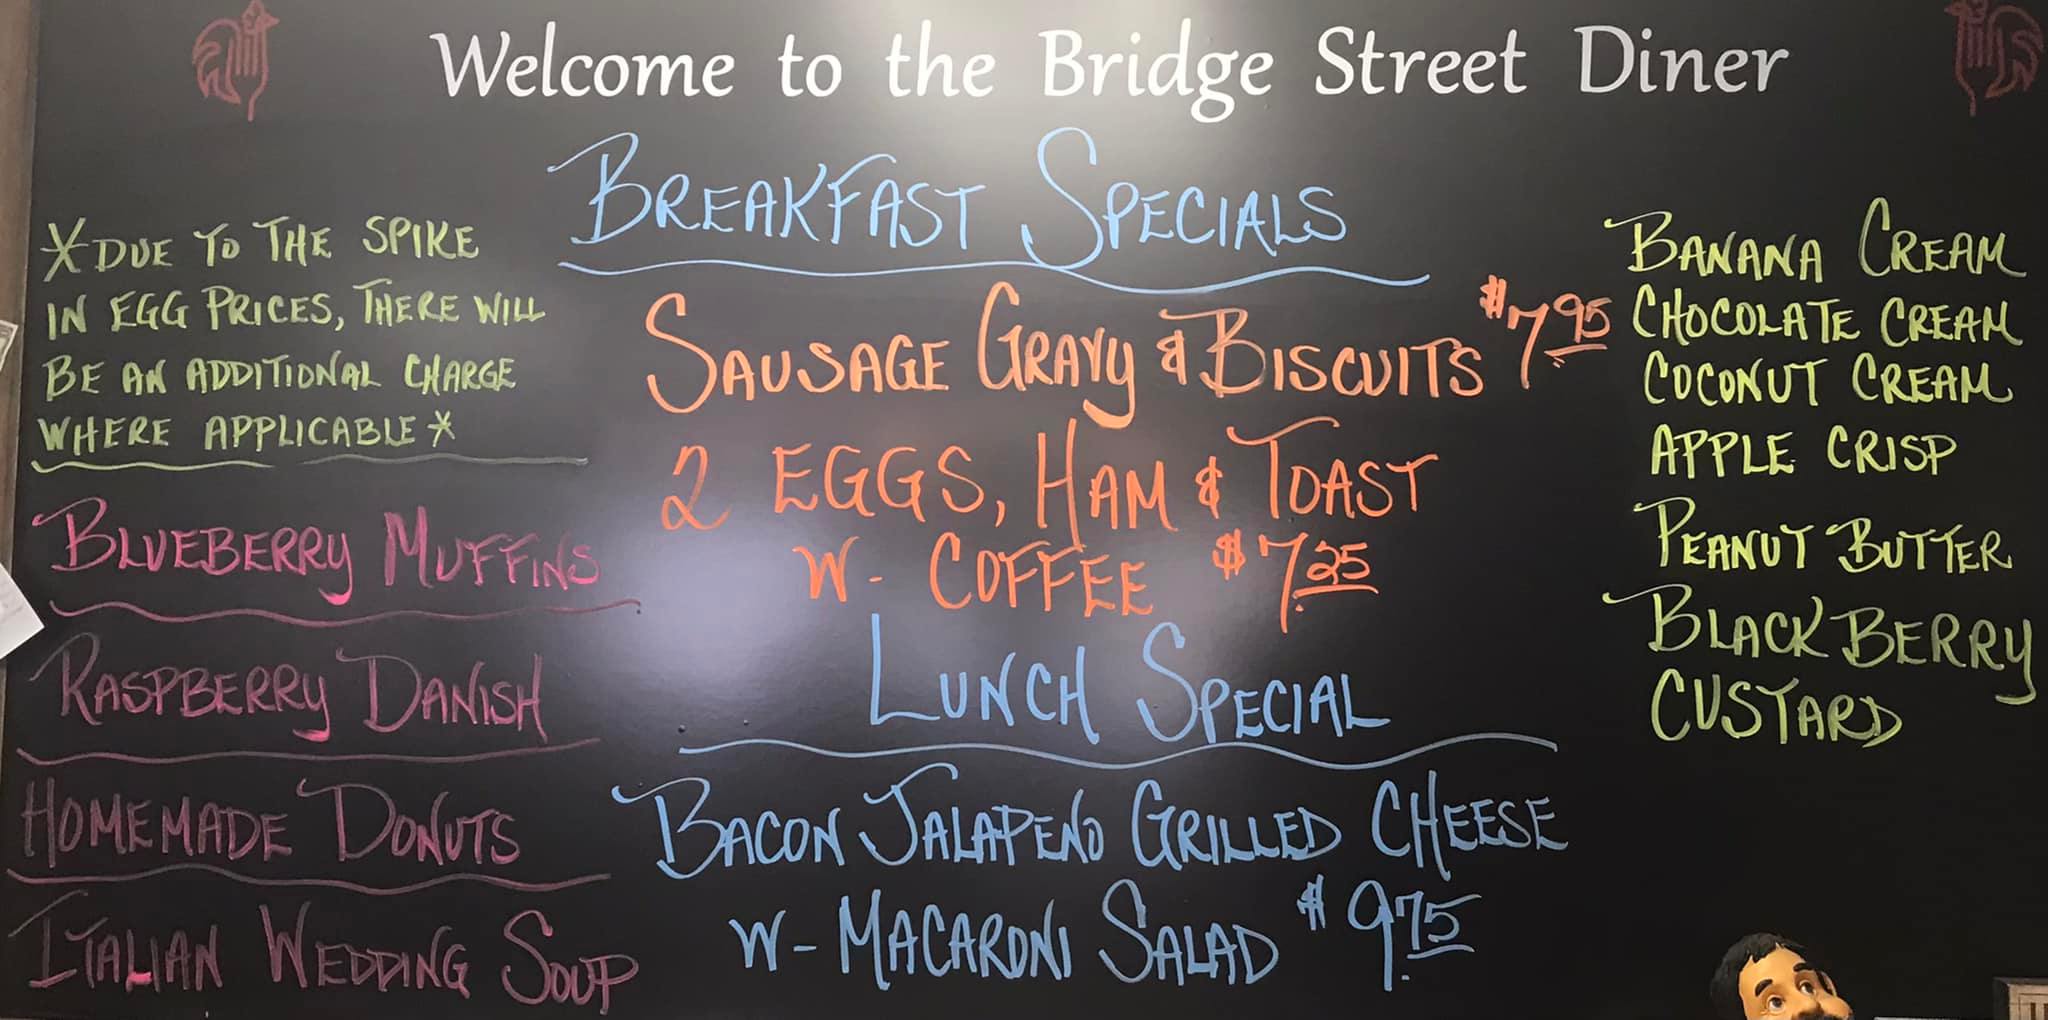 Welcome to the Bridge Street Diner
*DUE TO THE SPIKE
IN EGG PRICES, THERE WILL
BE AN ADDITIONAL CHARGE
WHERE APPLICABLE*
BLUEBERRY MUFFINS
RASPBERRY DANISH
HOMEMADE DONUTS
ITALIAN WEDDING SOUP
BREAKFAST SPECIALS
SAUSAGE GRAVY & BISCUITS $7.95
2 EGGS, HAM & TOAST
W- COFFEE $7.25
LUNCH SPECIAL
BACON JALAPENO GRILLED CHEESE
W- MACARONI SALAD $9.75
BANANA CREAM
CHOCOLATE CREAM
COCONUT CREAM
APPLE CRISP
PEANUT BUTTER
BLACKBERRY
CUSTARD